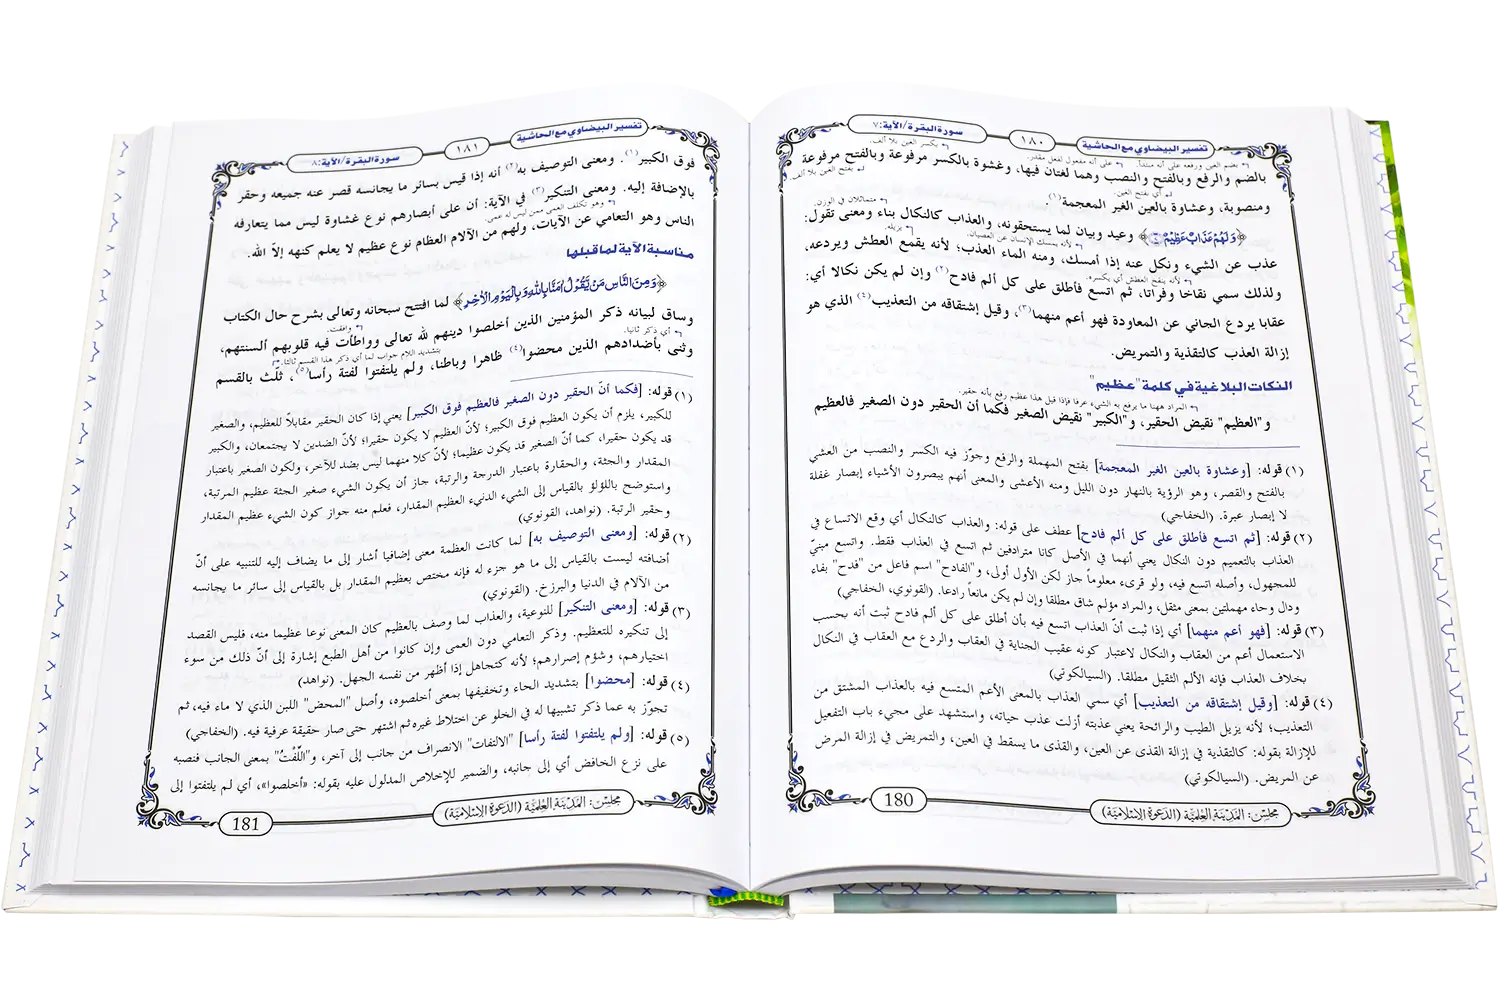 تفسير البيضاوي مع الحاشية
١٨٠
سورة البقرة/الآية:٧
بضم العين ورفعه على أنه مبتدأ. على أنه مفعول لفعل مقدر. بكسر العين بلا ألف.
بالضم والرفع وبالفتح والنصب وهما لغتان فيها، وغشوة بالكسر مرفوعة وبالفتح مرفوعة
أي بفتح العين. بفتح العين بلا ألف.
ومنصوبة، وعشاوة بالعين الغير المعجمة(١).
متماثلان في الوزن.
﴿وَلَهُمْ عَذَابٌ عَظِيمٌ﴾ وعيد وبيان لما يستحقونه، والعذاب كالنكال بناء ومعنى تقول:
لأنه يمسك الإنسان عن العصيان. يزيله.
عذب عن الشيء ونكل عنه إذا أمسك، ومنه الماء العذب؛ لأنه يقمع العطش ويردعه،
لأنه ينقخ العطش أي يكسره.
ولذلك سمي نقاخا وفراتا، ثم اتسع فأطلق على كل ألم فادح(٢) وإن لم يكن نكالا أي:
عقابا يردع الجاني عن المعاودة فهو أعم منهما(٣)، وقيل إشتقاقه من التعذيب(٤) الذي هو
إزالة العذب كالتقذية والتمريض.
النكات البلاغية في كلمة "عظيم"
المراد ههنا ما يرفع به الشيء عرفا فإذا قيل هذا عظيم رفع بأنه حقير.
و"العظيم" نقيض الحقير، و"الكبير" نقيض الصغير فكما أن الحقير دون الصغير فالعظيم
(١) قوله: [وعشاوة بالعين الغير المعجمة] بفتح المهملة والرفع وجوّز فيه الكسر والنصب من العشي
بالفتح والقصر، وهو الرؤية بالنهار دون الليل ومنه الأعشى والمعنى أنهم يبصرون الأشياء إبصار غفلة
لا إبصار عبرة. (الخفاجي)
(٢) قوله: [ثم اتسع فأطلق على كل ألم فادح] عطف على قوله: والعذاب كالنكال أي وقع الاتساع في
العذاب بالتعميم دون النكال يعني أنهما في الأصل كانا مترادفين ثم اتسع في العذاب فقط. واتسع مبنيّ
للمجهول، وأصله اتسع فيه، ولو قرىء معلوماً جاز لكن الأول أولى، و"الفادح" اسم فاعل من "فدح" بفاء
ودال وحاء مهملتين بمعنى مثقل، والمراد مؤلم شاق مطلقا وإن لم يكن مانعاً رادعا. (القونوي، الخفاجي)
(٣) قوله: [فهو أعم منهما] أي إذا ثبت أنّ العذاب اتسع فيه بأن أطلق على كل ألم فادح ثبت أنه بحسب
الاستعمال أعم من العقاب والنكال لاعتبار كونه عقيب الجناية في العقاب والردع مع العقاب في النكال
بخلاف العذاب فإنه الألم الثقيل مطلقا. (السيالكوتي)
(٤) قوله: [وقيل إشتقاقه من التعذيب] أي سمي العذاب بالمعنى الأعم المتسع فيه بالعذاب المشتق من
التعذيب؛ لأنه يزيل الطيب والرائحة يعني عذبته أزلت عذب حياته، واستشهد على مجيء باب التفعيل
للإزالة بقوله: كالتقذية في إزالة القذى عن العين، والقذى ما يسقط في العين، والتمريض في إزالة المرض
عن المريض. (السيالكوتي)
مجلس: المدينة العلمية (الدعوة الإسلامية)
180
تفسير البيضاوي مع الحاشية
١٨١
سورة البقرة/الآية:٨
فوق الكبير(١). ومعنى التوصيف به(٢) أنه إذا قيس بسائر ما يجانسه قصر عنه جميعه وحقر
بالإضافة إليه. ومعنى التنكير(٣) في الآية: أن على أبصارهم نوع غشاوة ليس مما يتعارفه
وهو تكلف العمى ممن ليس له عمى.
الناس وهو التعامي عن الآيات، ولهم من الآلام العظام نوع عظيم لا يعلم كنهه إلاّ الله.
مناسبة الآية لما قبلها
﴿وَمِنَ النَّاسِ مَنْ يَّقُوْلُ اٰمَنَّا بِاللهِ وَبِالْيَوْمِ الْاٰخِرِ﴾ لما افتتح سبحانه وتعالى بشرح حال الكتاب
وساق لبيانه ذكر المؤمنين الذين أخلصوا دينهم لله تعالى وواطأت فيه قلوبهم ألسنتهم،
أي ذكر ثانيا. وافقت.
وثنى بأضدادهم الذين محضوا(٤) ظاهرا وباطنا، ولم يلتفتوا لفتة رأسا(٥)، ثلّث بالقسم
بتشديد اللام جواب لما أي ذكر هذا القسم ثالثا.
(١) قوله: [فكما أنّ الحقير دون الصغير فالعظيم فوق الكبير] يعني إذا كان الحقير مقابلاً للعظيم، والصغير
للكبير، يلزم أن يكون العظيم فوق الكبير؛ لأنّ العظيم لا يكون حقيرا؛ لأنّ الضدين لا يجتمعان، والكبير
قد يكون حقيرا، كما أنّ الصغير قد يكون عظيما؛ لأنّ كلا منهما ليس بضد للآخر، ولكون الصغير باعتبار
المقدار والجثة، والحقارة باعتبار الدرجة والرتبة، جاز أن يكون الشيء صغير الجثة عظيم المرتبة،
واستوضح باللؤلؤ بالقياس إلى الشيء الدنيء العظيم المقدار، فعلم منه جواز كون الشيء عظيم المقدار
وحقير الرتبة. (نواهد، القونوي)
(٢) قوله: [ومعنى التوصيف به] لما كانت العظمة معنى إضافيا أشار إلى ما يضاف إليه للتنبيه على أنّ
أضافته ليست بالقياس إلى ما هو جزء له فإنه مختص بعظيم المقدار بل بالقياس إلى سائر ما يجانسه
من الآلام في الدنيا والبرزخ. (القونوي)
(٣) قوله: [ومعنى التنكير] للنوعية، والعذاب لما وصف بالعظيم كان المعنى نوعا عظيما منه، فليس القصد
إلى تنكيره للتعظيم. وذكر التعامي دون العمى وإن كانوا من أهل الطبع إشارة إلى أنّ ذلك من سوء
اختيارهم، وشؤم إصرارهم؛ لأنه كتجاهل إذا أظهر من نفسه الجهل. (نواهد)
(٤) قوله: [محضوا] بتشديد الحاء وتخفيفها بمعنى أخلصوه، وأصل "المحض" اللبن الذي لا ماء فيه، ثم
تجوّز به عما ذكر تشبيها له في الخلو عن اختلاط غيره ثم اشتهر حتى صار حقيقة عرفية فيه. (الخفاجي)
(٥) قوله: [ولم يلتفتوا لفتة رأسا] "الالتفات" الانصراف من جانب إلى آخر، و"اللَّفْتُ" بمعنى الجانب فنصبه
على نزع الخافض أي إلى جانبه، والضمير للإخلاص المدلول عليه بقوله: «أخلصوا»، أي لم يلتفتوا إلى
مجلس: المدينة العلمية (الدعوة الإسلامية)
181